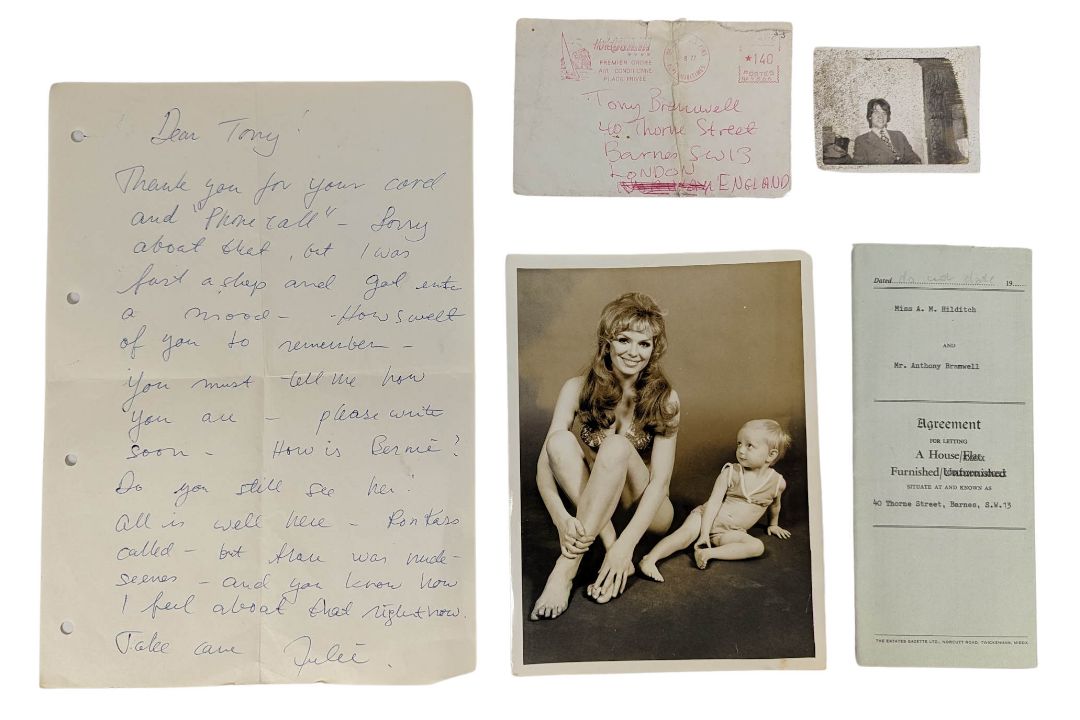 Dear Tony!
Thank you for your card
and "Phone call" - Sorry
about that, but I was
fast asleep and got into
a mood - How sweet
of you to remember -
You must tell me how
you are - please write
soon - How is Bernie?
Do you still see her?
all is well here - Ron Kass
called - but there was nude-
scenes - and you know how
I feel about that right now.
Take care Julie.
PREMIER ORDRE
AIR CONDITIONNE
PLAGE PRIVEE
*140
POSTES
Tony Bramwell
40 Thorne Street
Barnes SW13
LONDON
ENGLAND
Dated do not date 19......
Miss A. M. Hilditch
AND
Mr. Anthony Bramwell
Agreement
FOR LETTING
A House/Flat
Furnished/Unfurnished
SITUATE AT AND KNOWN AS
40 Thorne Street, Barnes, S.W.13
THE ESTATES GAZETTE LTD., NORCUTT ROAD, TWICKENHAM, MIDDX.